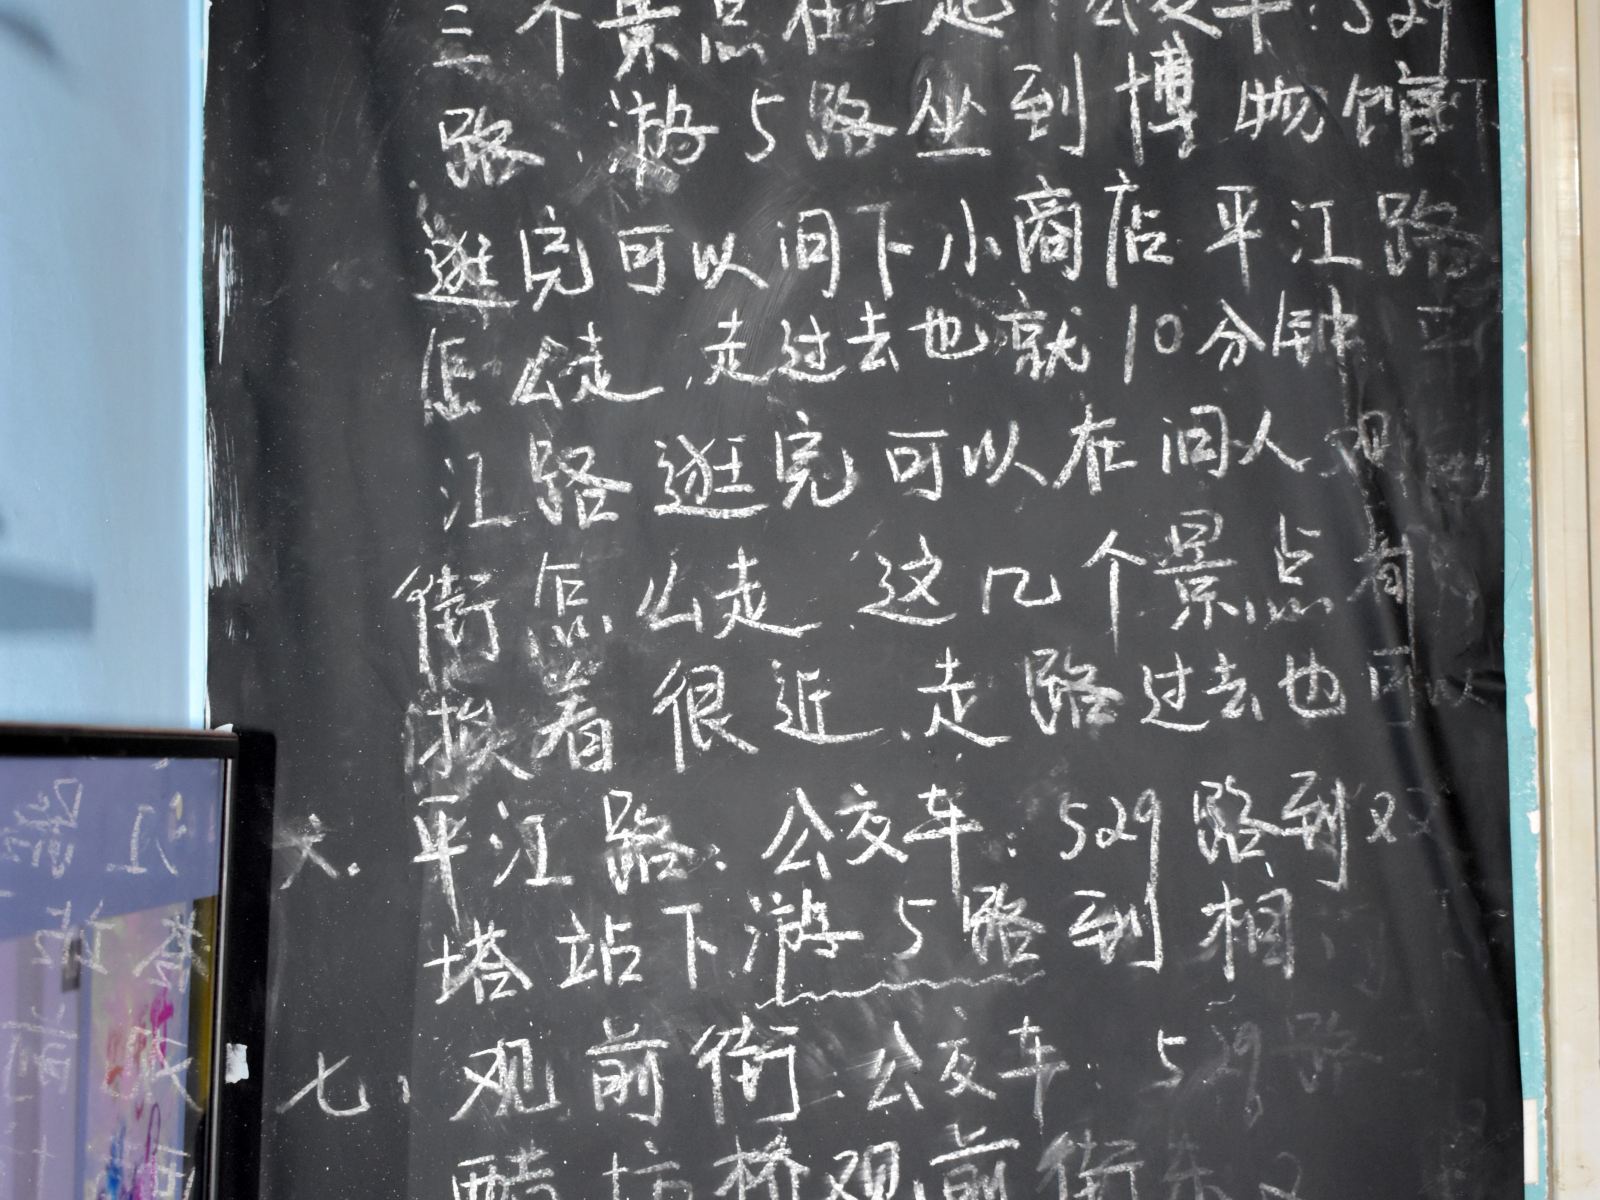 三个景点在一起.公交车:529
路.游5路坐到博物馆下
逛完可以问下小商店平江路
怎么走.走过去也就10分钟平
江路逛完可以在问人观前
街怎么走.这几个景点有
挨着很近.走路过去也可以
六.平江路:公交车:529路到双
塔站下游5路到相
七、观前街:公交车:529路
醋坊桥观前街东